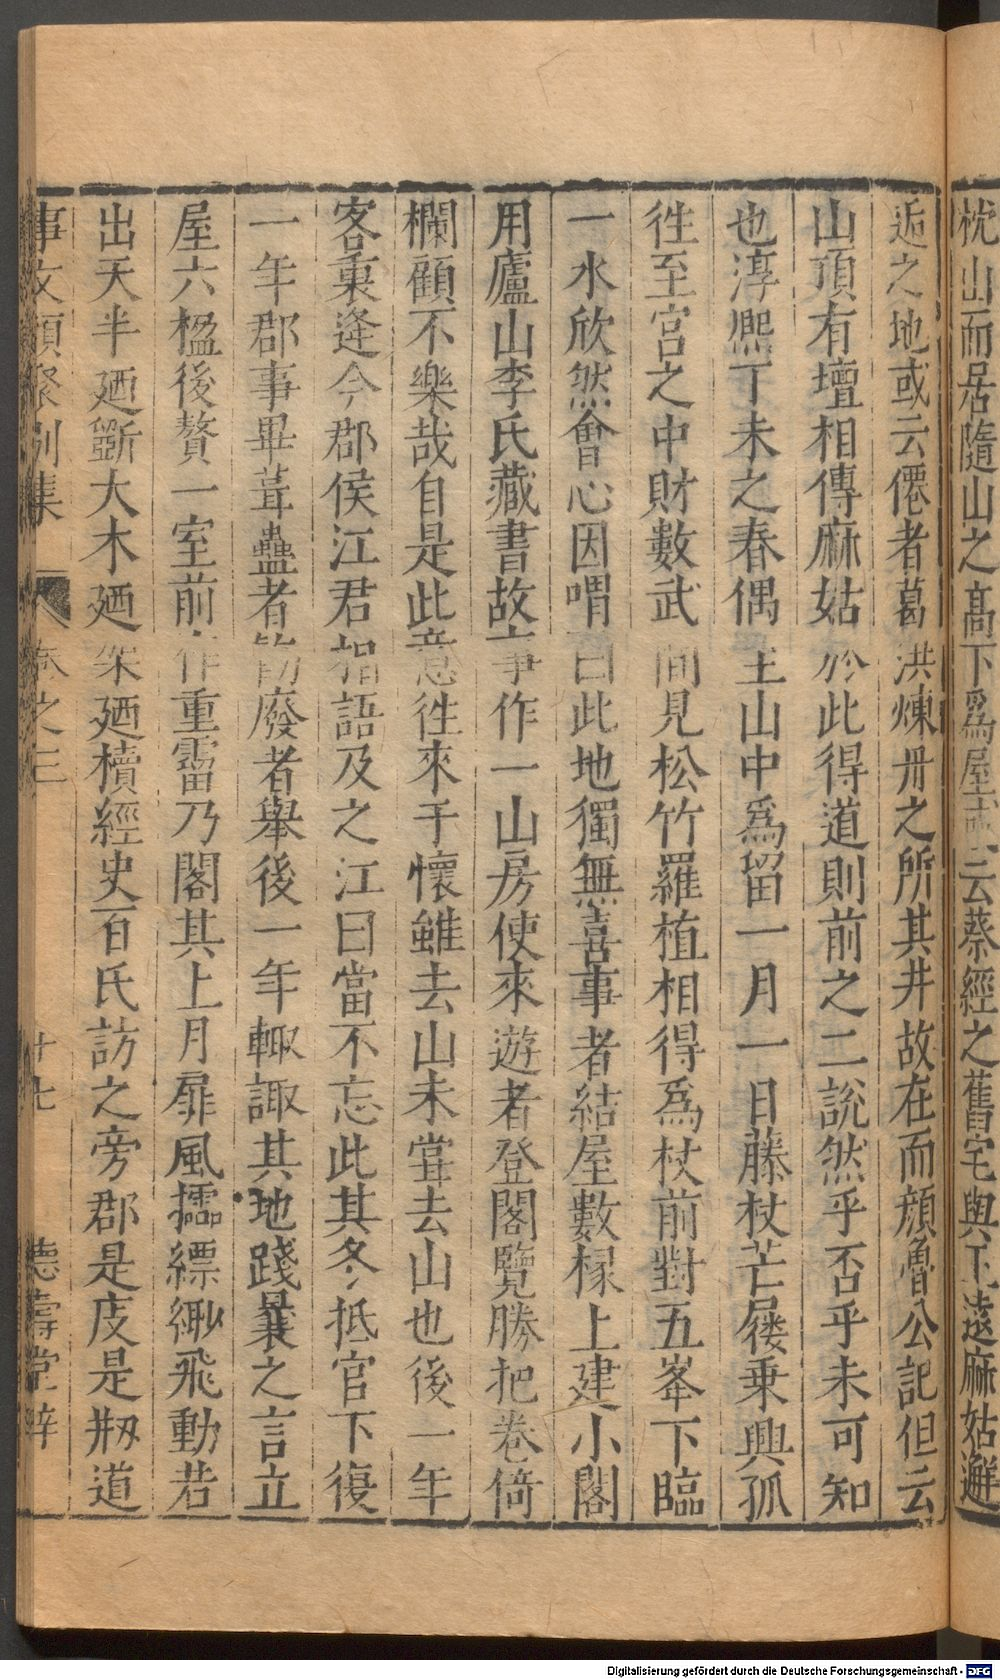 枕山而居隨山之高下爲屋云蔡經之舊宅與王遠麻姑邂
逅之地或云僊者葛洪煉丹之所其井故在而顔魯公記但云
山頂有壇相傳麻姑於此得道則前之二說然乎否乎未可知
也淳熙丁未之春偶至山中爲留一月一日藤杖芒屨乗興孤
徃至宮之中財數武間見松竹羅植相得爲杖前對五峯下臨
一水欣然會心因喟曰此地獨無喜事者結屋數椽上建小閣
用廬山李氏藏書故事作一山房使來遊者登閣覽勝把卷倚
欄顧不樂哉自是此意徃來于懷雖去山未甞去山也後一年
客裏逢今郡侯江君相語及之江曰當不忘此其冬抵官下復
一年郡事畢葺蠱者飭廢者舉後一年輙諏其地踐曩之言立
屋六楹後贅一室前作重霤乃閣其上月扉風櫺縹緲飛動若
出天半廼斵大木廼架廼櫝經史百氏訪之旁郡是庋是剏道
事文類聚别集
卷之三
十七
德壽堂梓
Digitalisierung gefördert durch die Deutsche Forschungsgemeinschaft - DFG